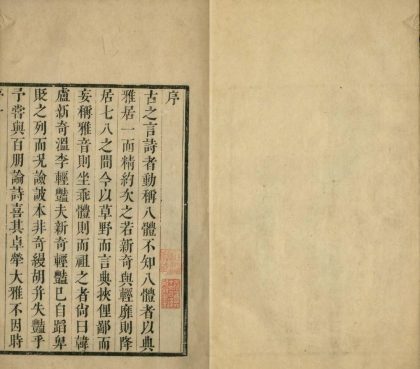 序
古之言詩者動稱八體不知八體者以典
雅居一而精約次之若新奇與輕靡則降
居七八之間今以草野而言典挾俚鄙而
妄稱雅音則坐乖體則而祖之者尙曰韓
盧新奇溫李輕豔夫新奇輕豔已自蹈卑
貶之列而況諭詖本非奇縵胡幷失豔乎
予嘗與百朋論詩喜其卓犖大雅不因時